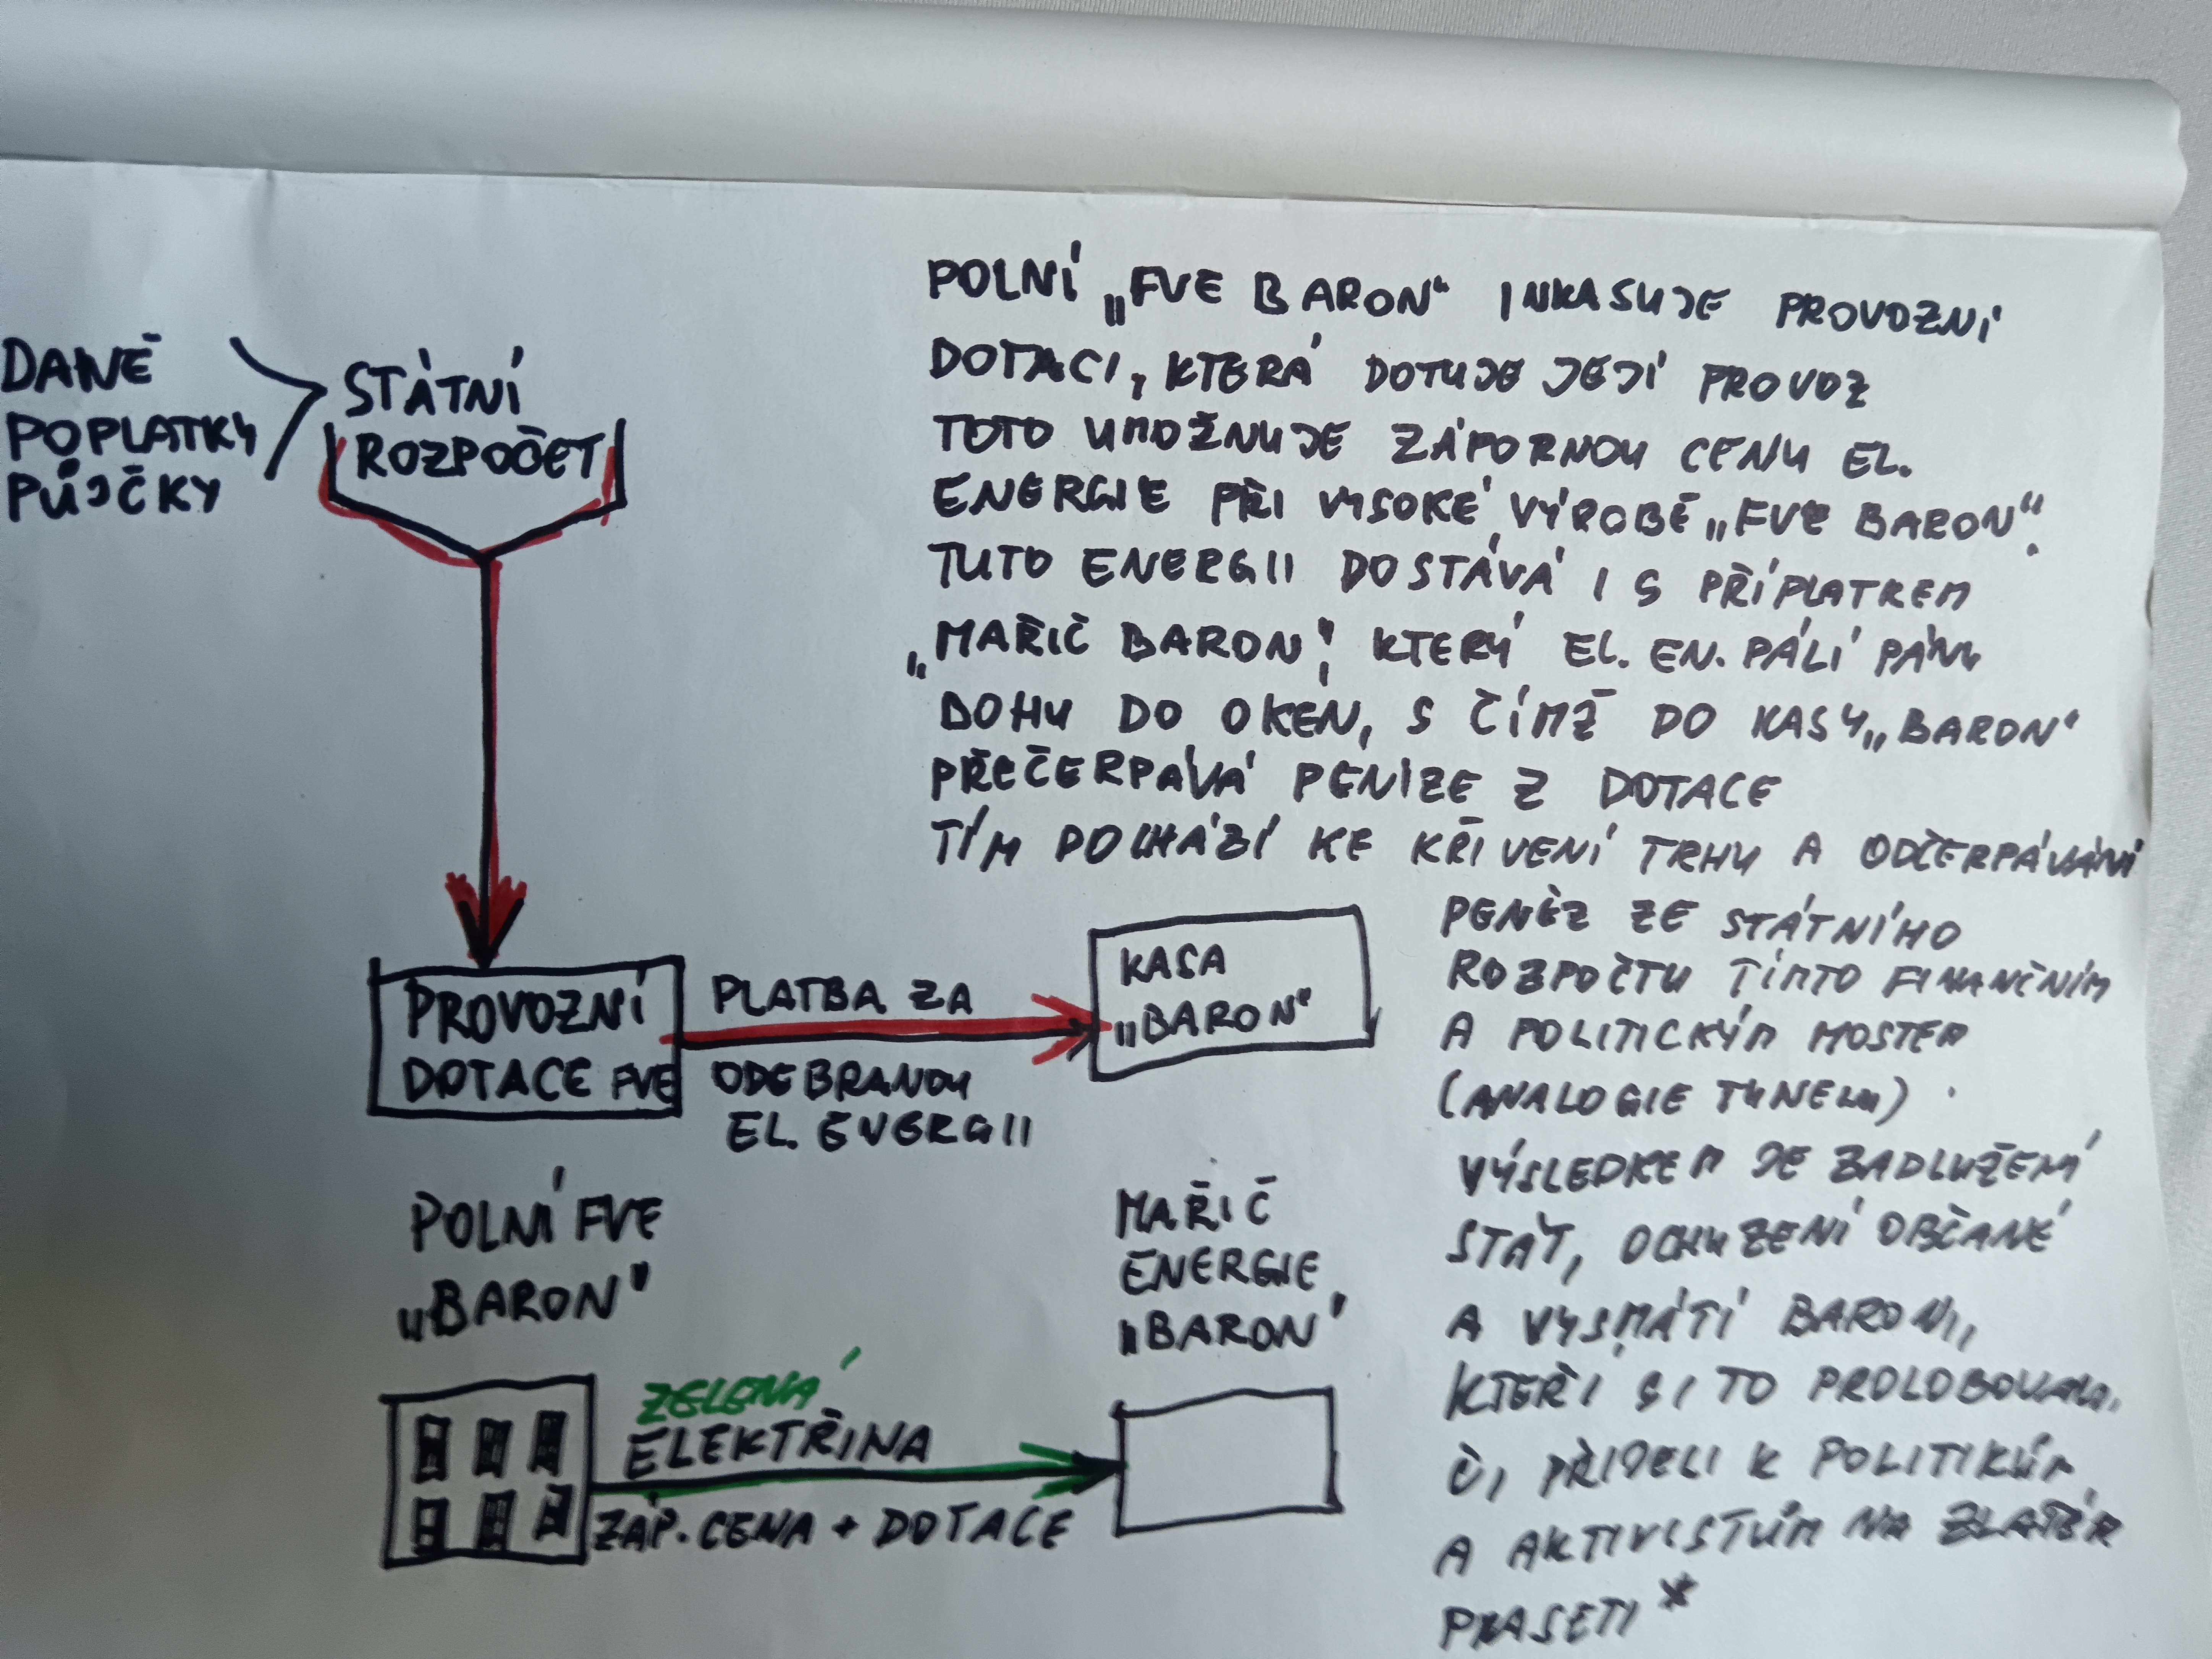 DANĚ
POPLATKY
PŮJČKY
STÁTNÍ
ROZPOČET
PROVOZNÍ
DOTACE FVE
PLATBA ZA
ODEBRANOU
EL. ENERGII
KASA
„BARON"
POLNÍ FVE
„BARON"
MAŘIČ
ENERGIE
„BARON"
ZELENÁ
ELEKTŘINA
ZÁP. CENA + DOTACE
POLNÍ „FVE BARON" INKASUJE PROVOZNÍ
DOTACI, KTERÁ DOTUJE JEJÍ PROVOZ
TOTO UMOŽNUJE ZÁPORNOU CENU EL.
ENERGIE PŘI VYSOKÉ VÝROBĚ „FVE BARON".
TUTO ENERGII DOSTÁVÁ I S PŘÍPLATKEM
„MAŘIČ BARON", KTERÝ EL. EN. PÁLÍ PÁNU
BOHU DO OKEN, S ČÍMŽ DO KASY „BARON"
PŘEČERPÁVÁ PENÍZE Z DOTACE
TÍM DOCHÁZÍ KE KŘIVENÍ TRHU A ODČERPÁVÁNÍ
PENĚZ ZE STÁTNÍHO
ROZPOČTU TÍMTO FINANČNÍM
A POLITICKÝM MOSTEM
(ANALOGIE TUNELU).
VÝSLEDKEM JE ZADLUŽENÍ
STÁT, OCHUZENÍ OBČANÉ
A VYSMÁTÍ BARONI,
KTEŘÍ SI TO PROLOBOVALI,
ČI PŘIJELI K POLITIKŮM
A AKTIVISTŮM NA ZLATÉM
PRASETI *